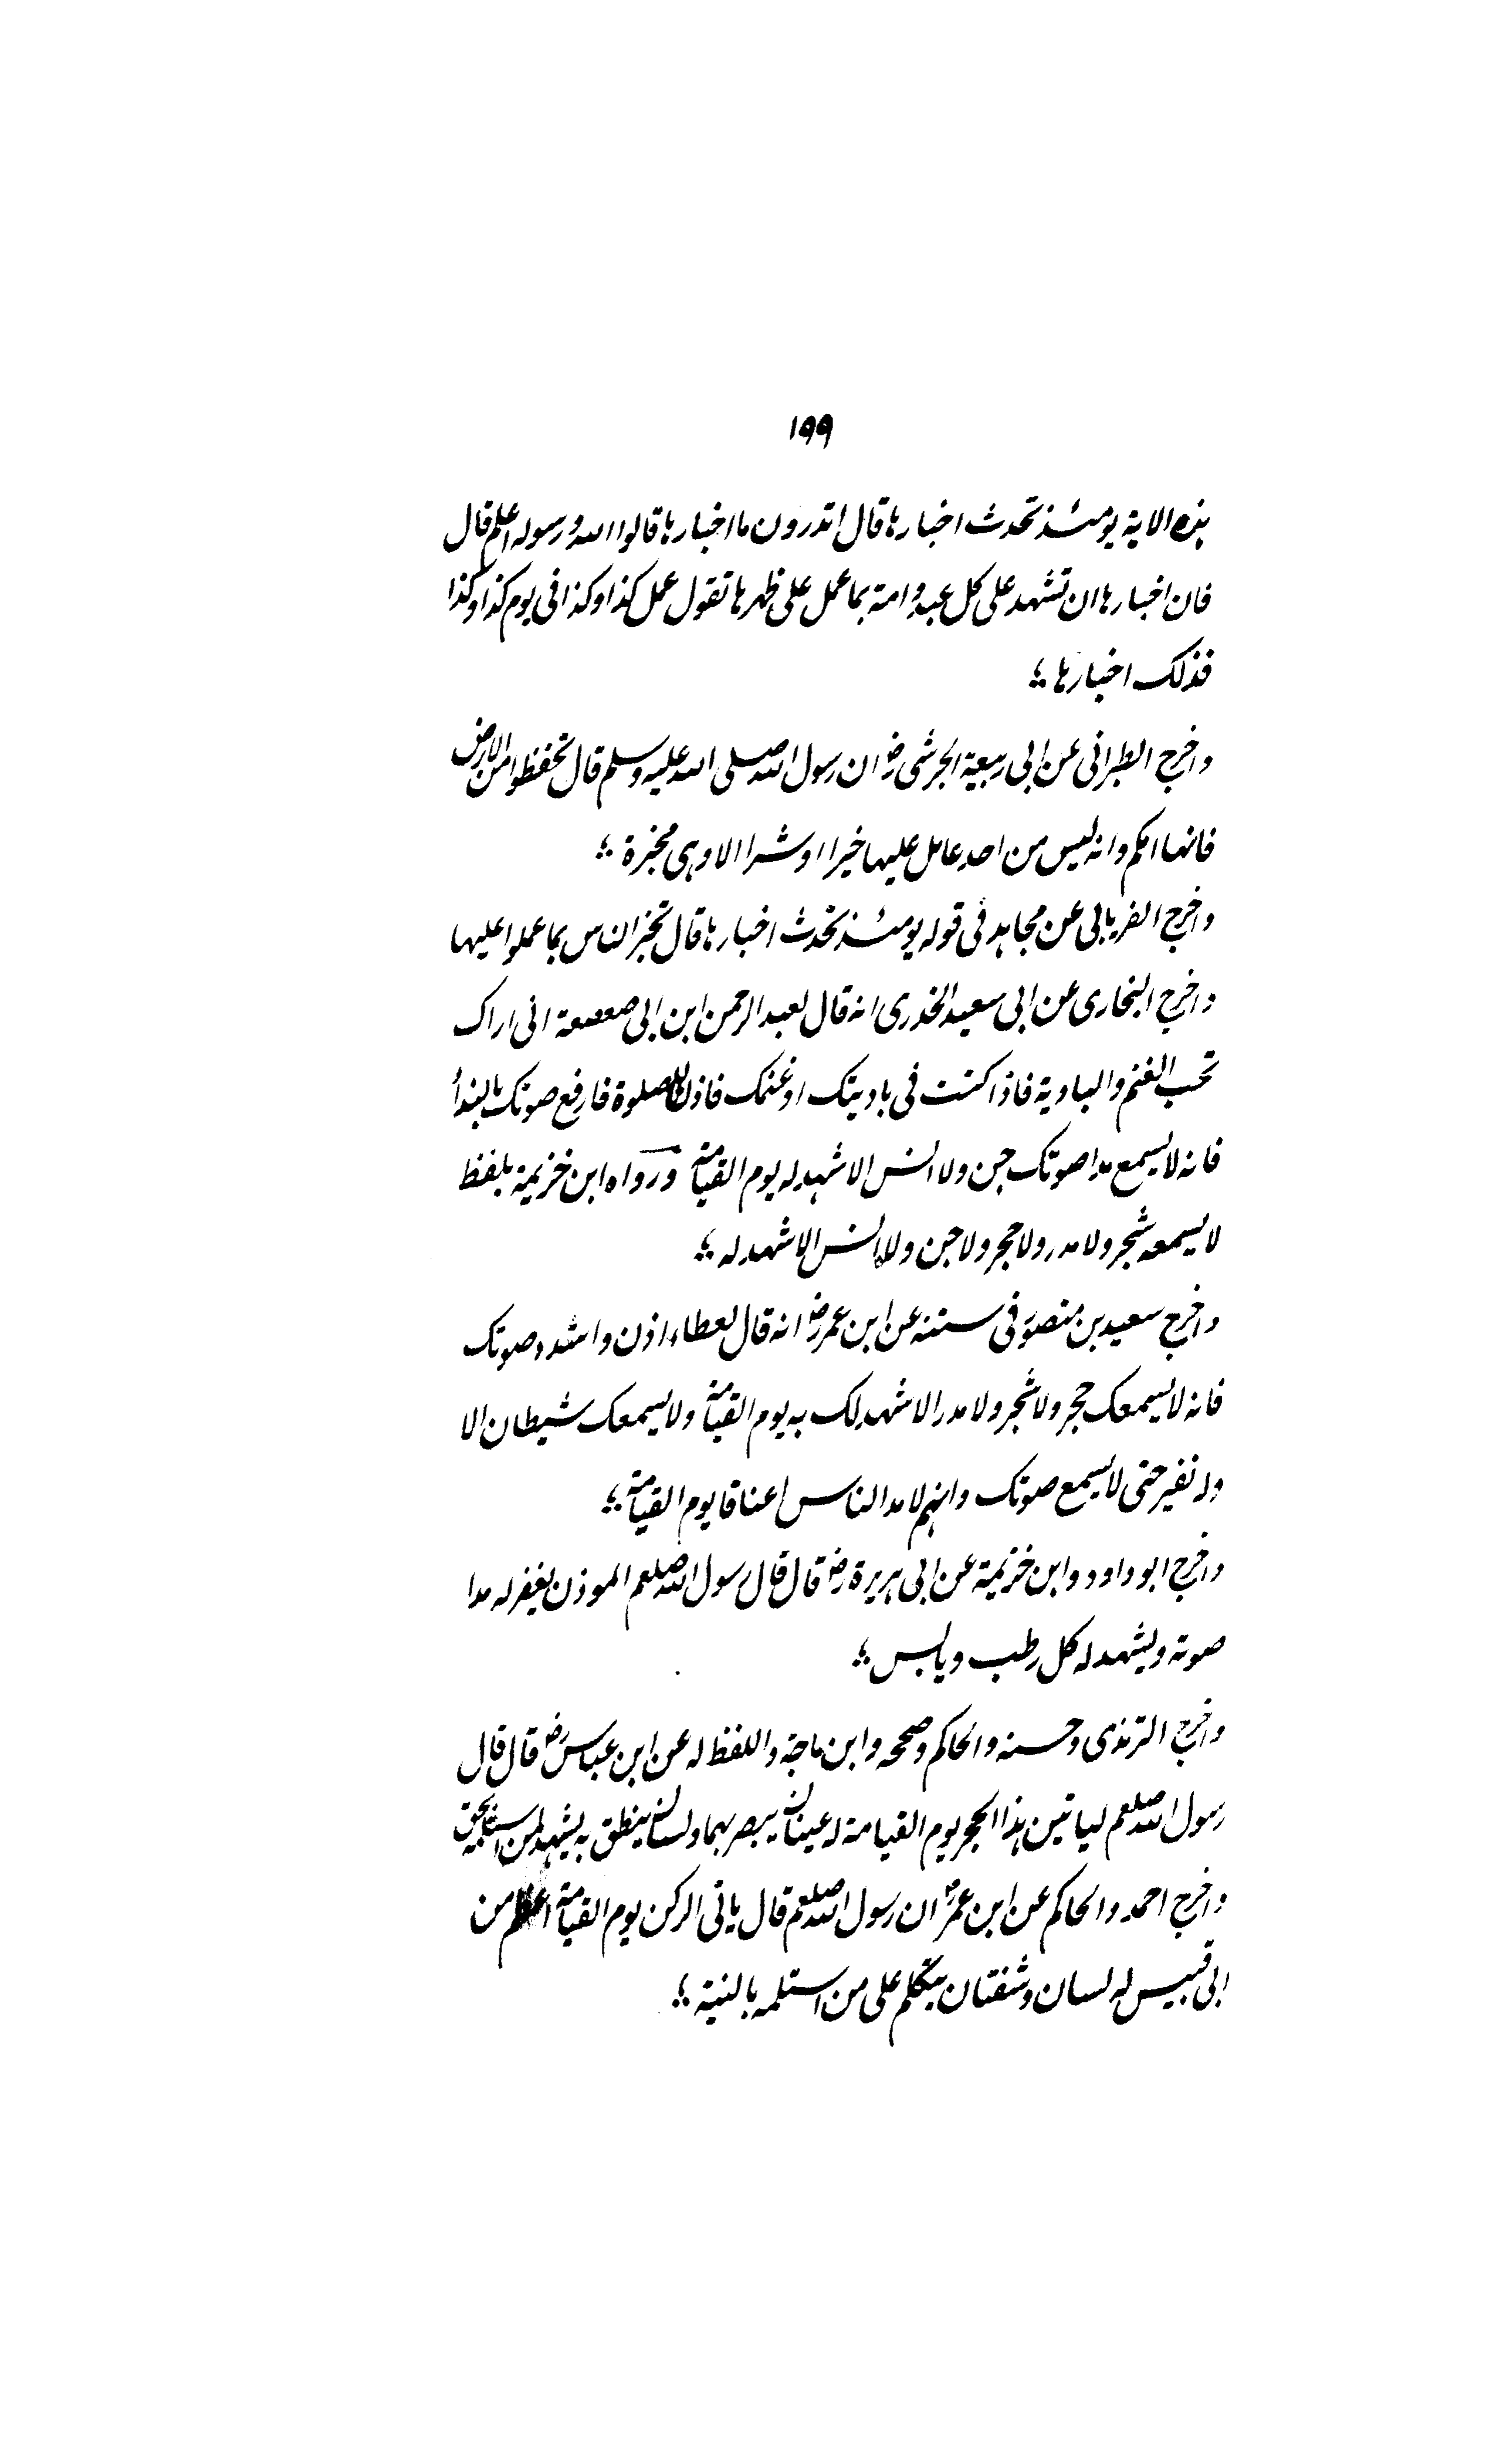 ١٩٩
هذه الاية يومئذ تحدث اخبارها قال اتدرون ما اخبارها قالوا الله ورسوله اعلم قال
فان اخبارها ان تشهد على كل عبد وامة بما عمل على ظهرها تقول عمل كذا وكذا فى يوم كذا وكذا
فذلك اخبارها ؛
واخرج الطبرانى عن ابى ربيعة الجرشى رض ان رسول الله صلى الله عليه وسلم قال تحفظوا من الارض
فانها امكم وانه ليس من احد عامل عليها خيرا او شرا الا وهى مخبرة ؛
واخرج الفريابى عن مجاهد فى قوله يومئذ تحدث اخبارها قال تخبر الناس بما عملوا عليها
واخرج البخارى عن ابى سعيد الخدرى انه قال لعبد الرحمن ابن ابى صعصعة انى اراك
تحب الغنم والبادية فاذا كنت فى باديتك او غنمك فاذن للصلوة فارفع صوتك بالندأ
فانه لا يسمع مدا صوتك جن ولا انس الا شهد له يوم القيامة ورواه ابن خزيمة بلفظ
لا يسمعه شجر ولا مدر ولا حجر ولا جن ولا انس الا شهد له ؛
واخرج سعيد بن منصور فى سننه عن ابن عمر رض انه قال لعطاء اذن واشدد صوتك
فانه لا يسمعك حجر ولا شجر ولا مدر الا شهد لك به يوم القيامة ولا يسمعك شيطان الا
وله نفير حتى لا يسمع صوتك وانهم لامد الناس اعناقا يوم القيامة ؛
واخرج ابو داود وابن خزيمة عن ابى هريرة رض قال قال رسول الله صلعم الموذن يغفر له مدا
صوته ويشهد له كل رطب ويابس ؛
واخرج الترمذى وحسنه والحاكم وصححه وابن ماجة واللفظ له عن ابن عباس رض قال قال
رسول الله صلعم لياتين هذا الحجر يوم القيامة له عينان يبصر بهما ولسان ينطق به يشهد لمن استلمه بحق
واخرج احمد والحاكم عن ابن عمر رض ان رسول الله صلعم قال ياتى الركن يوم القيامة اعظم من
ابى قبيس له لسان وشفتان يتكلم على من استلمه بالنية ؛